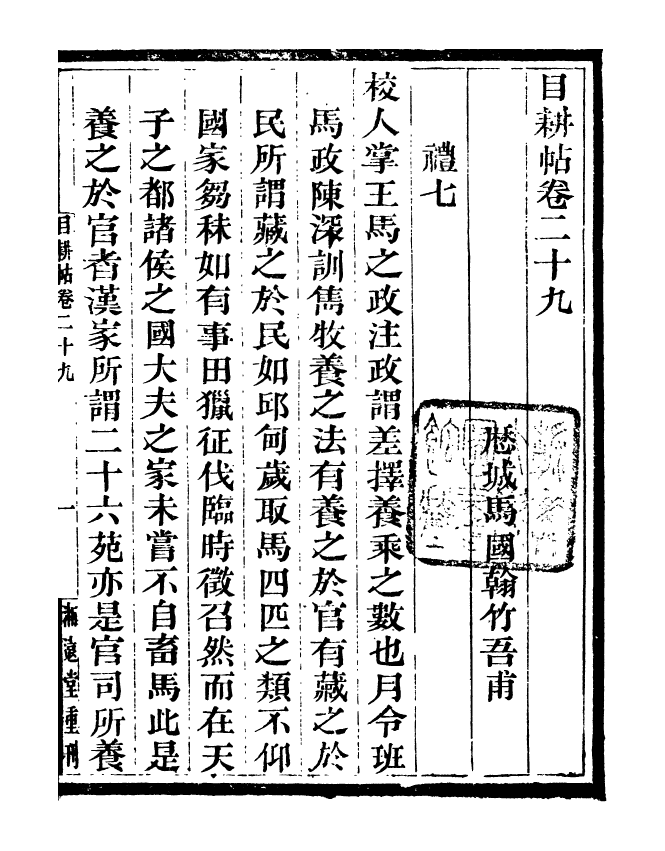 目耕帖卷二十九
歷城馬國翰竹吾甫
禮七
校人掌王馬之政注政謂差擇養乘之數也月令班
馬政陳深訓雋牧養之法有養之於官有藏之於
民所謂藏之於民如邱甸歲取馬四匹之類不仰
國家芻秣如有事田獵征伐臨時徵召然而在天
子之都諸侯之國大夫之家未嘗不自畜馬此是
養之於官者漢家所謂二十六苑亦是官司所養
目耕帖卷二十九
一
遠堂重刊